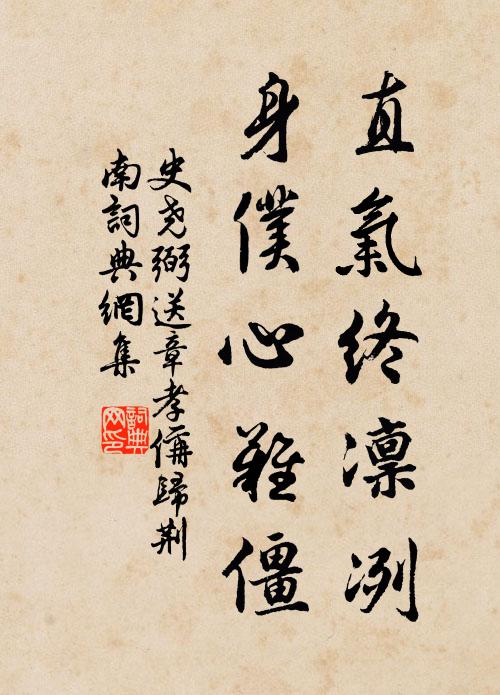 直氣終凜冽
身僕心難僵
史堯弼送章孝儞歸荆
南詞典網集
詞典
网印